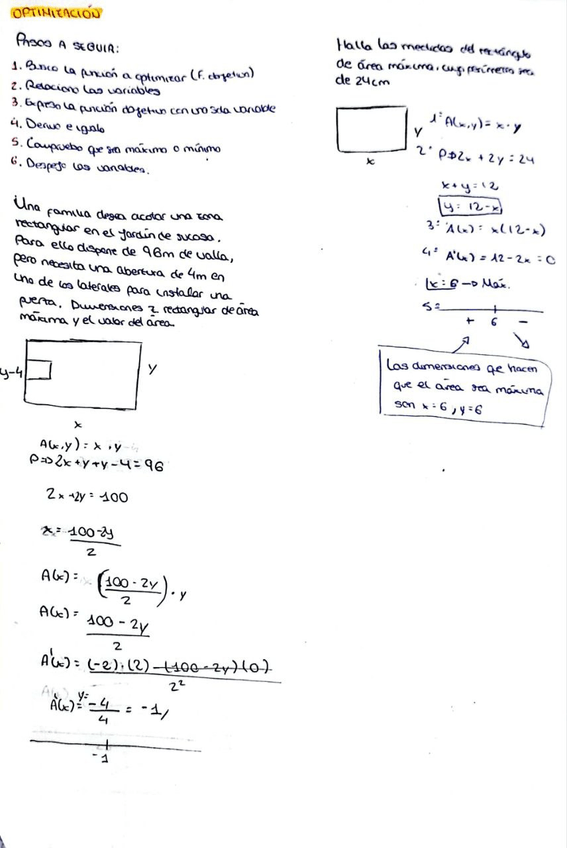 OPTIMIZACIÓN
PASOS A SEGUIR:
1. Busco la función a optimizar (F. objetivo)
2. Relaciono las variables
3. Expreso la función objetivo con una sola variable
4. Derivo e igualo
5. Compruebo que sea máximo o mínimo
6. Despejo las variables.
Una familia desea acotar una zona
rectangular en el jardín de su casa.
Para ello dispone de 96m de valla,
pero necesita una abertura de 4m en
uno de los laterales para instalar una
puerta. Dimensiones z rectangular de área
máxima y el valor del área.
y-4
y
x
A(x,y) = x · y
P=>2x+y+y-4=96
2x+2y=100
x= 100-2y
2
A(x)= (100-2y) · y
2
A(x)= 100-2y
2
A'(x)= (-2)·(2)-(100-2y)(0)
2²
A'(x)= y= -4 = -1
4
-1
Halla las medidas del rectángulo
de área máxima, cuyo perímetro sea
de 24cm
y
x
1º A(x,y)= x·y
2º P=>2x+2y=24
x+y=12
y=12-x
3º A(x)= x(12-x)
4º A'(x)=12-2x=0
x=6 -> Máx.
5=
+ 6 -
Las dimensiones que hacen
que el área sea máxima
son x=6, y=6